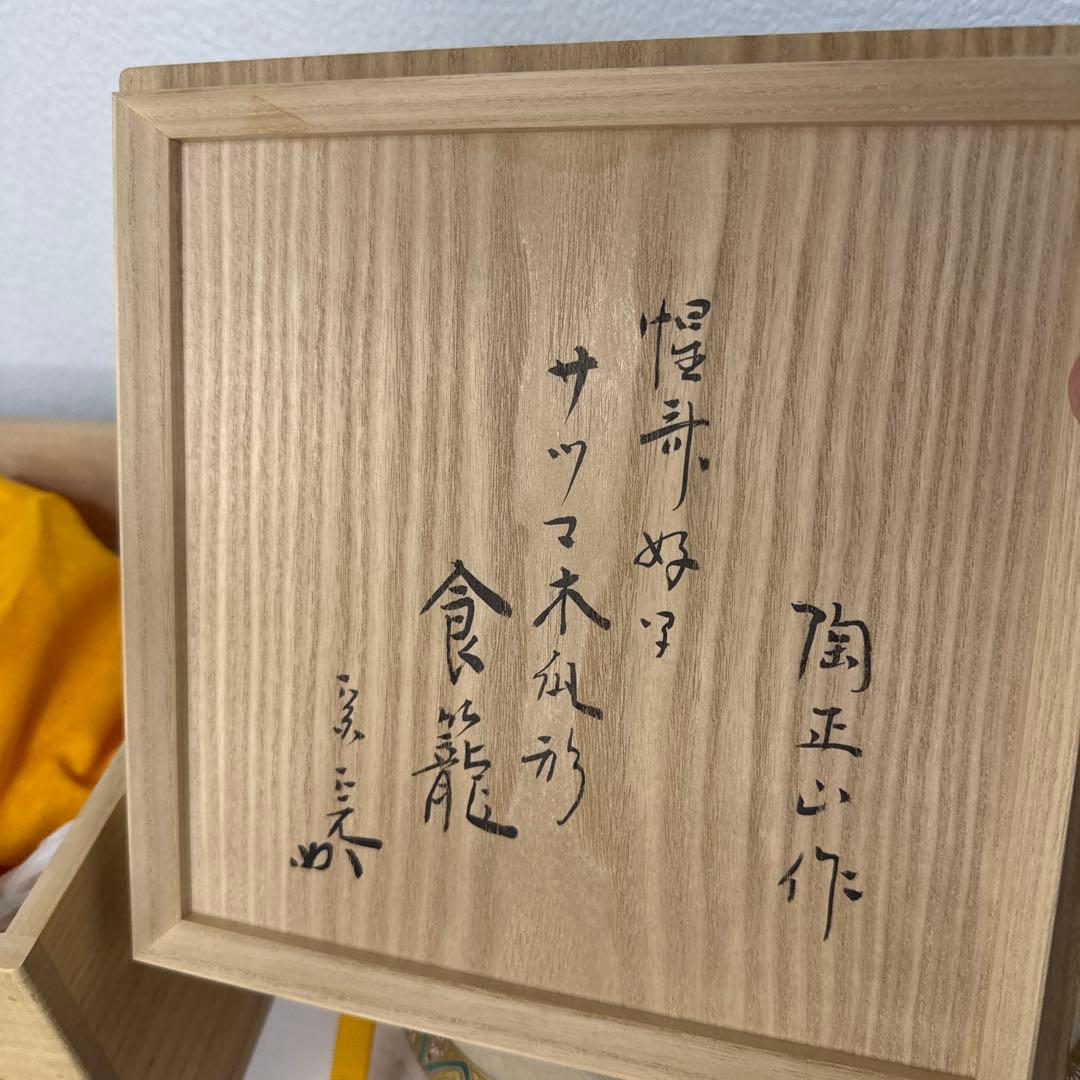 陶正山作
惺斎好写
サツマ木瓜形
食籠